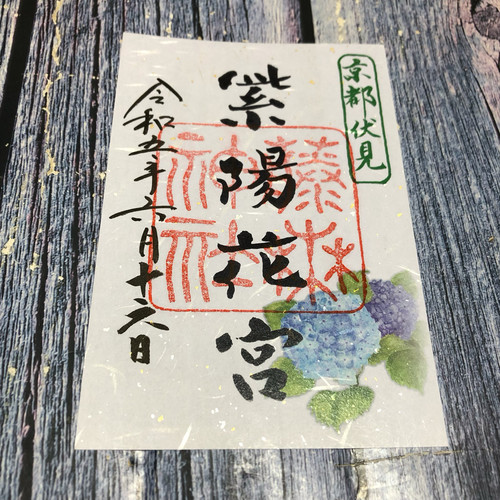 京都伏見
紫陽花宮
藤森
神社
令和五年六月十六日